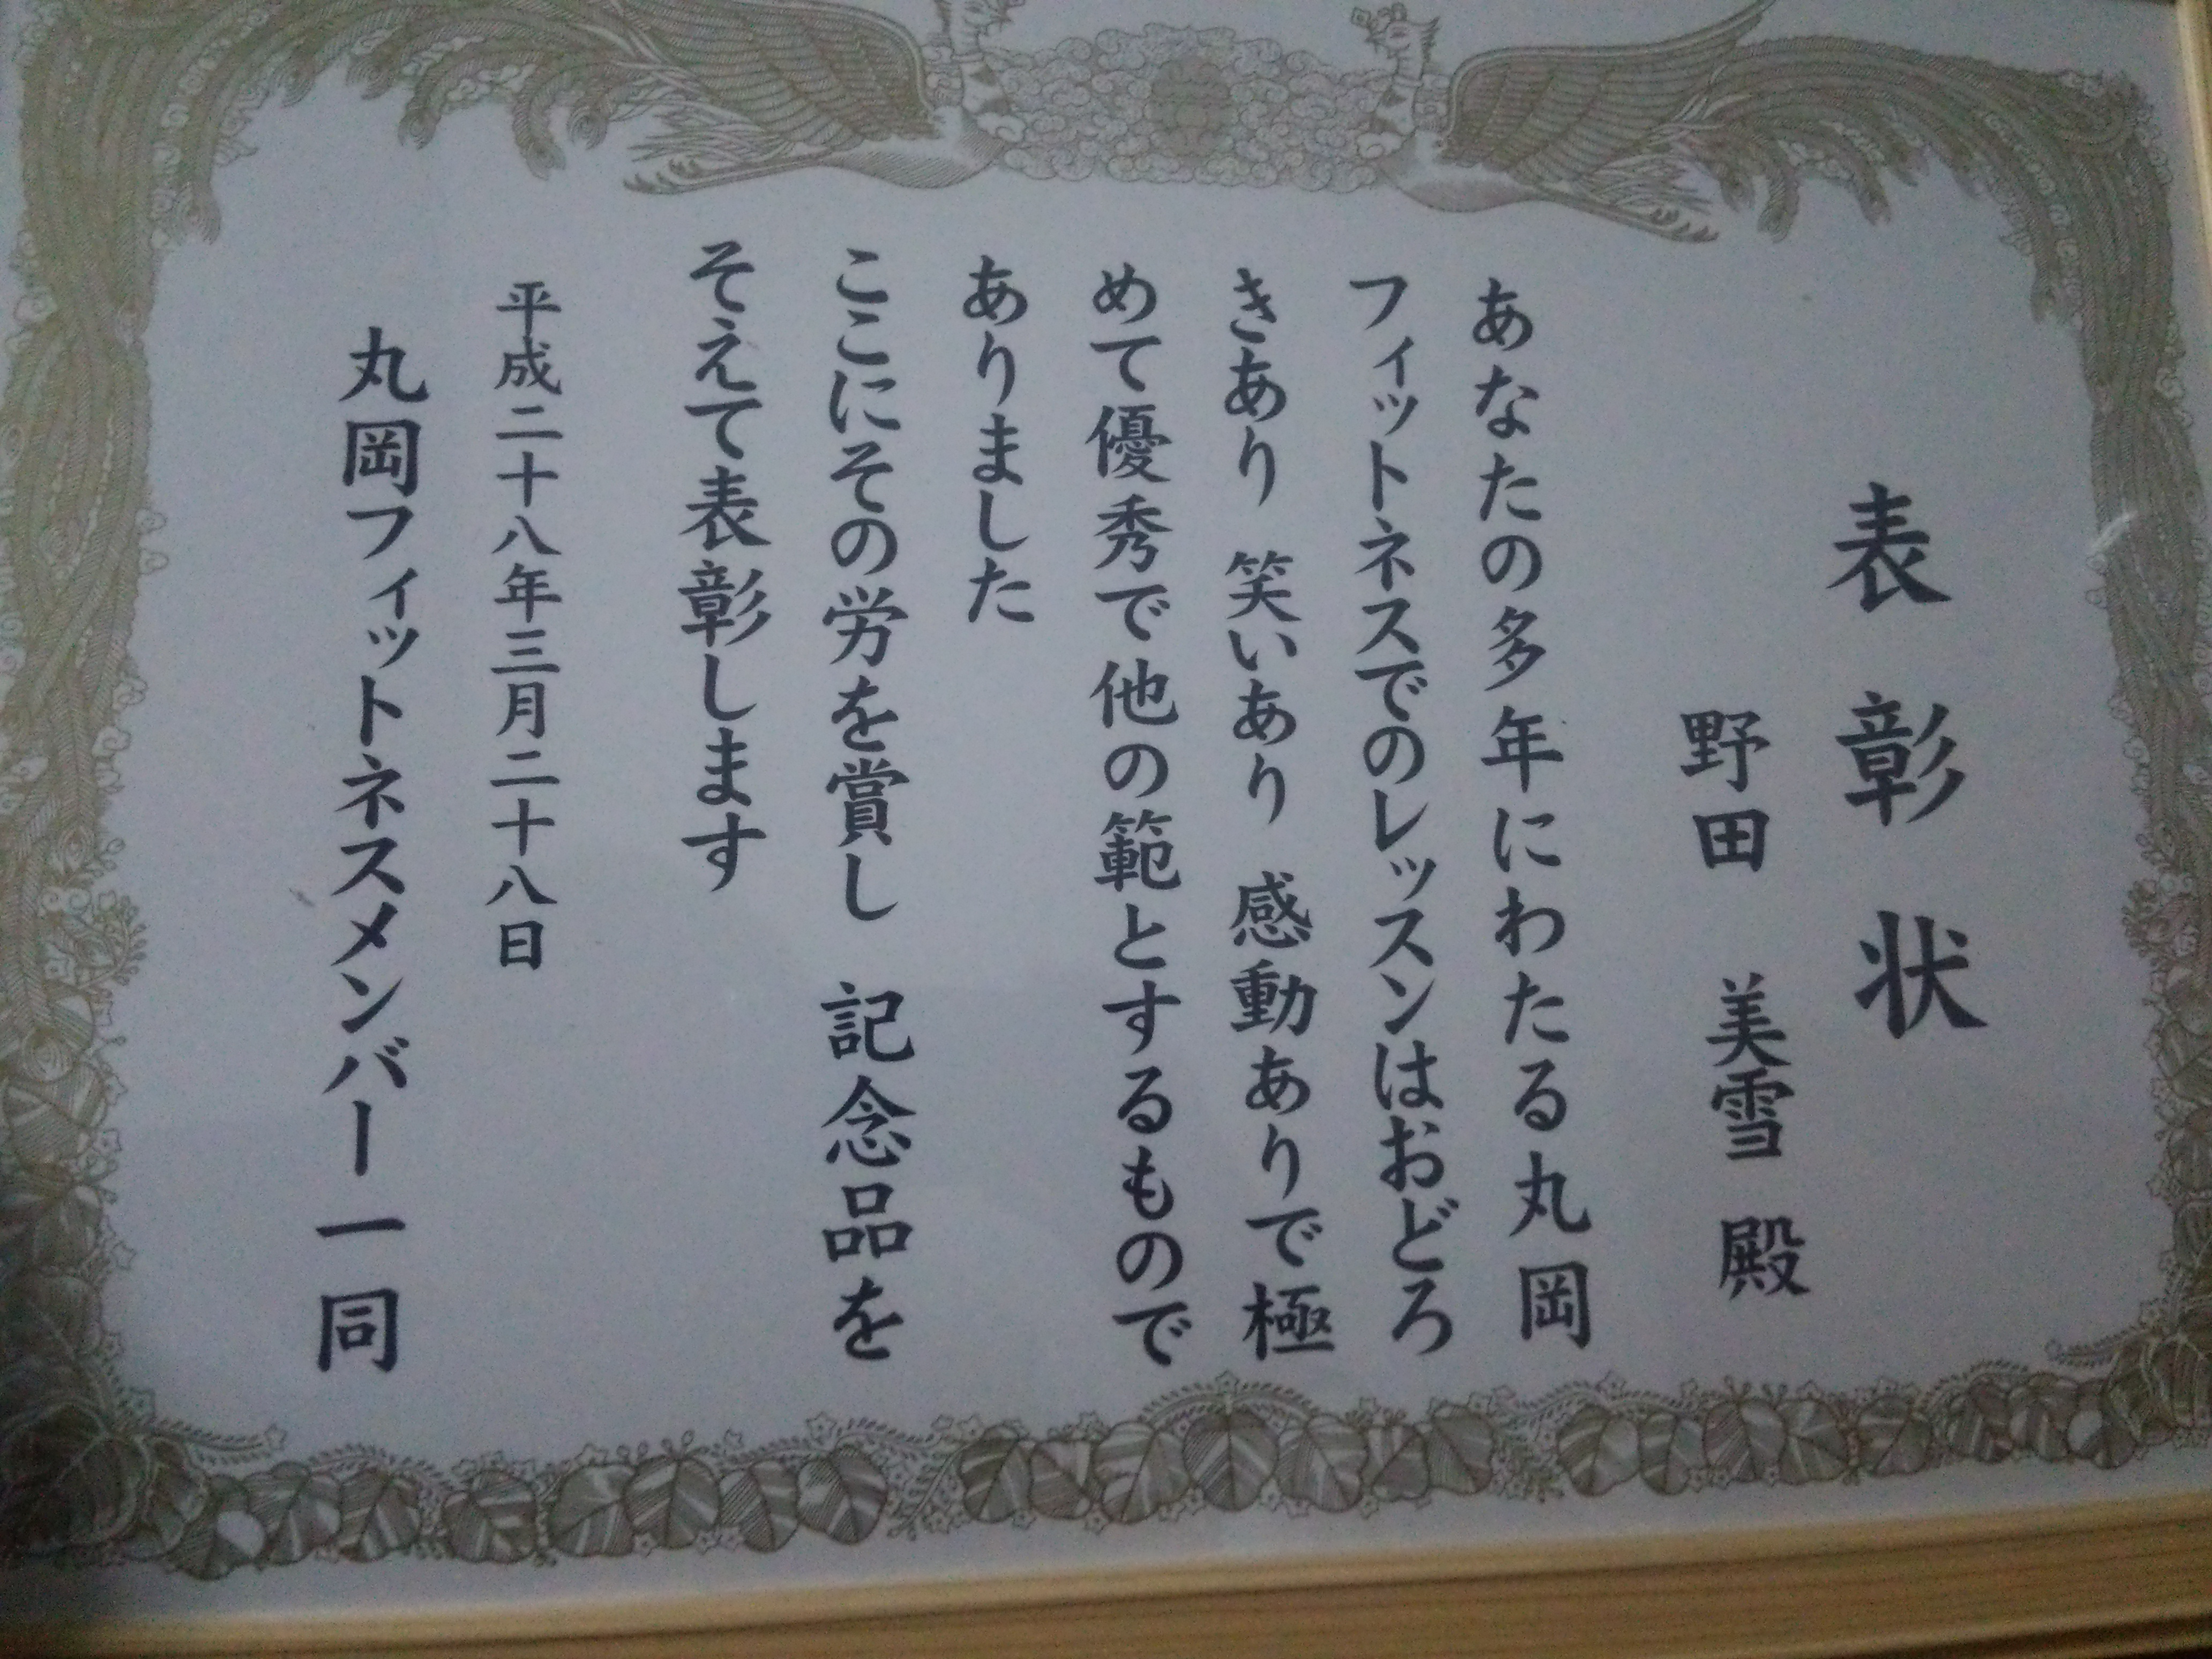 表彰状
野田 美雪 殿
あなたの多年にわたる丸岡
フィットネスでのレッスンはおどろ
きあり 笑いあり 感動ありで極
めて優秀で他の範とするもので
ありました
ここにその労を賞し 記念品を
そえて表彰します
平成二十八年三月二十八日
丸岡フィットネスメンバー一同